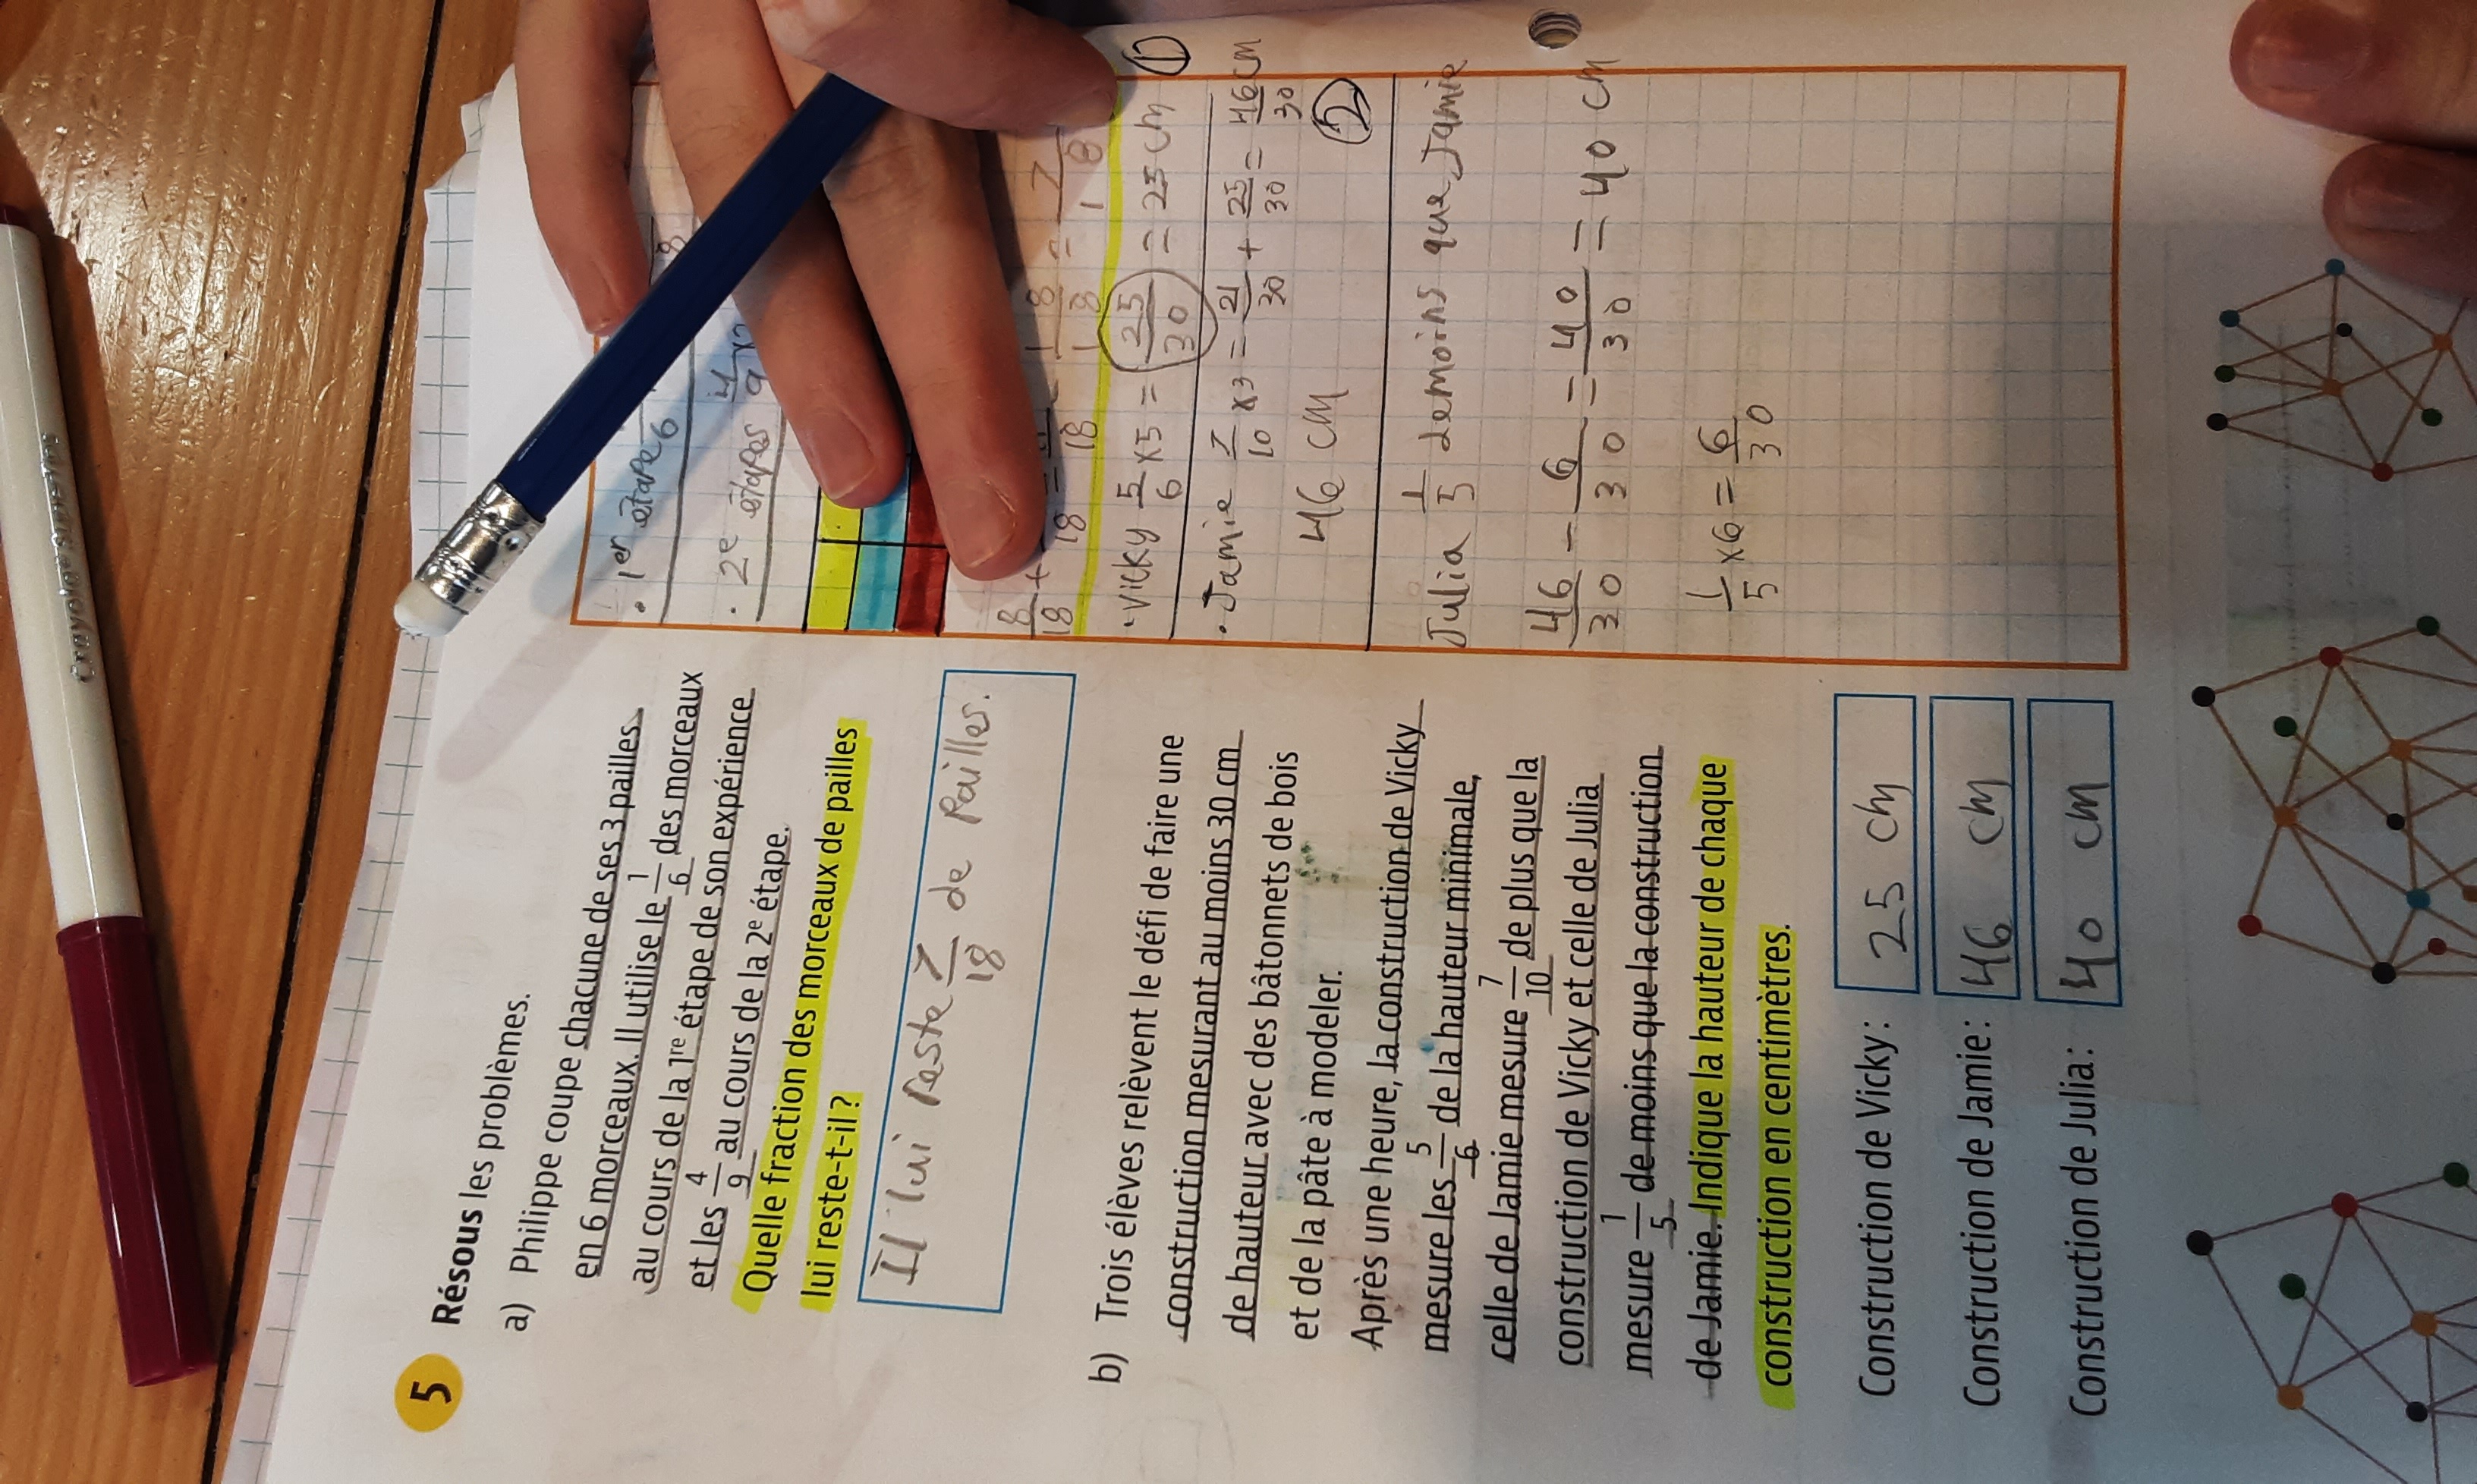 5 Résous les problèmes.
a) Philippe coupe chacune de ses 3 pailles
en 6 morceaux. Il utilise le 1/6 des morceaux
au cours de la 1re étape de son expérience
et les 4/9 au cours de la 2e étape.
Quelle fraction des morceaux de pailles
lui reste-t-il ?
Il lui reste 7/18 de Pailles.
b) Trois élèves relèvent le défi de faire une
construction mesurant au moins 30 cm
de hauteur avec des bâtonnets de bois
et de la pâte à modeler.
Après une heure, la construction de Vicky
mesure les 5/6 de la hauteur minimale,
celle de Jamie mesure 7/10 de plus que la
construction de Vicky et celle de Julia
mesure 1/5 de moins que la construction
de Jamie. Indique la hauteur de chaque
construction en centimètres.
Construction de Vicky : 25 cm
Construction de Jamie : 46 cm
Construction de Julia : 40 cm
• 1er étape 6 8
• 2e étapes 4/9 x
8/18 + 18 = 18 18/18 = 7/18
• Vicky 5/6 x5 = 25/30 = 25 cm 1
• Jamie 7/10 x3 = 21/30 + 25/30 = 46/30 cm
46 cm 2
Julia 1/5 demoins que Jamie
46/30 - 6/30 = 40/30 = 40 cm
1/5 x6 = 6/30
Crayola